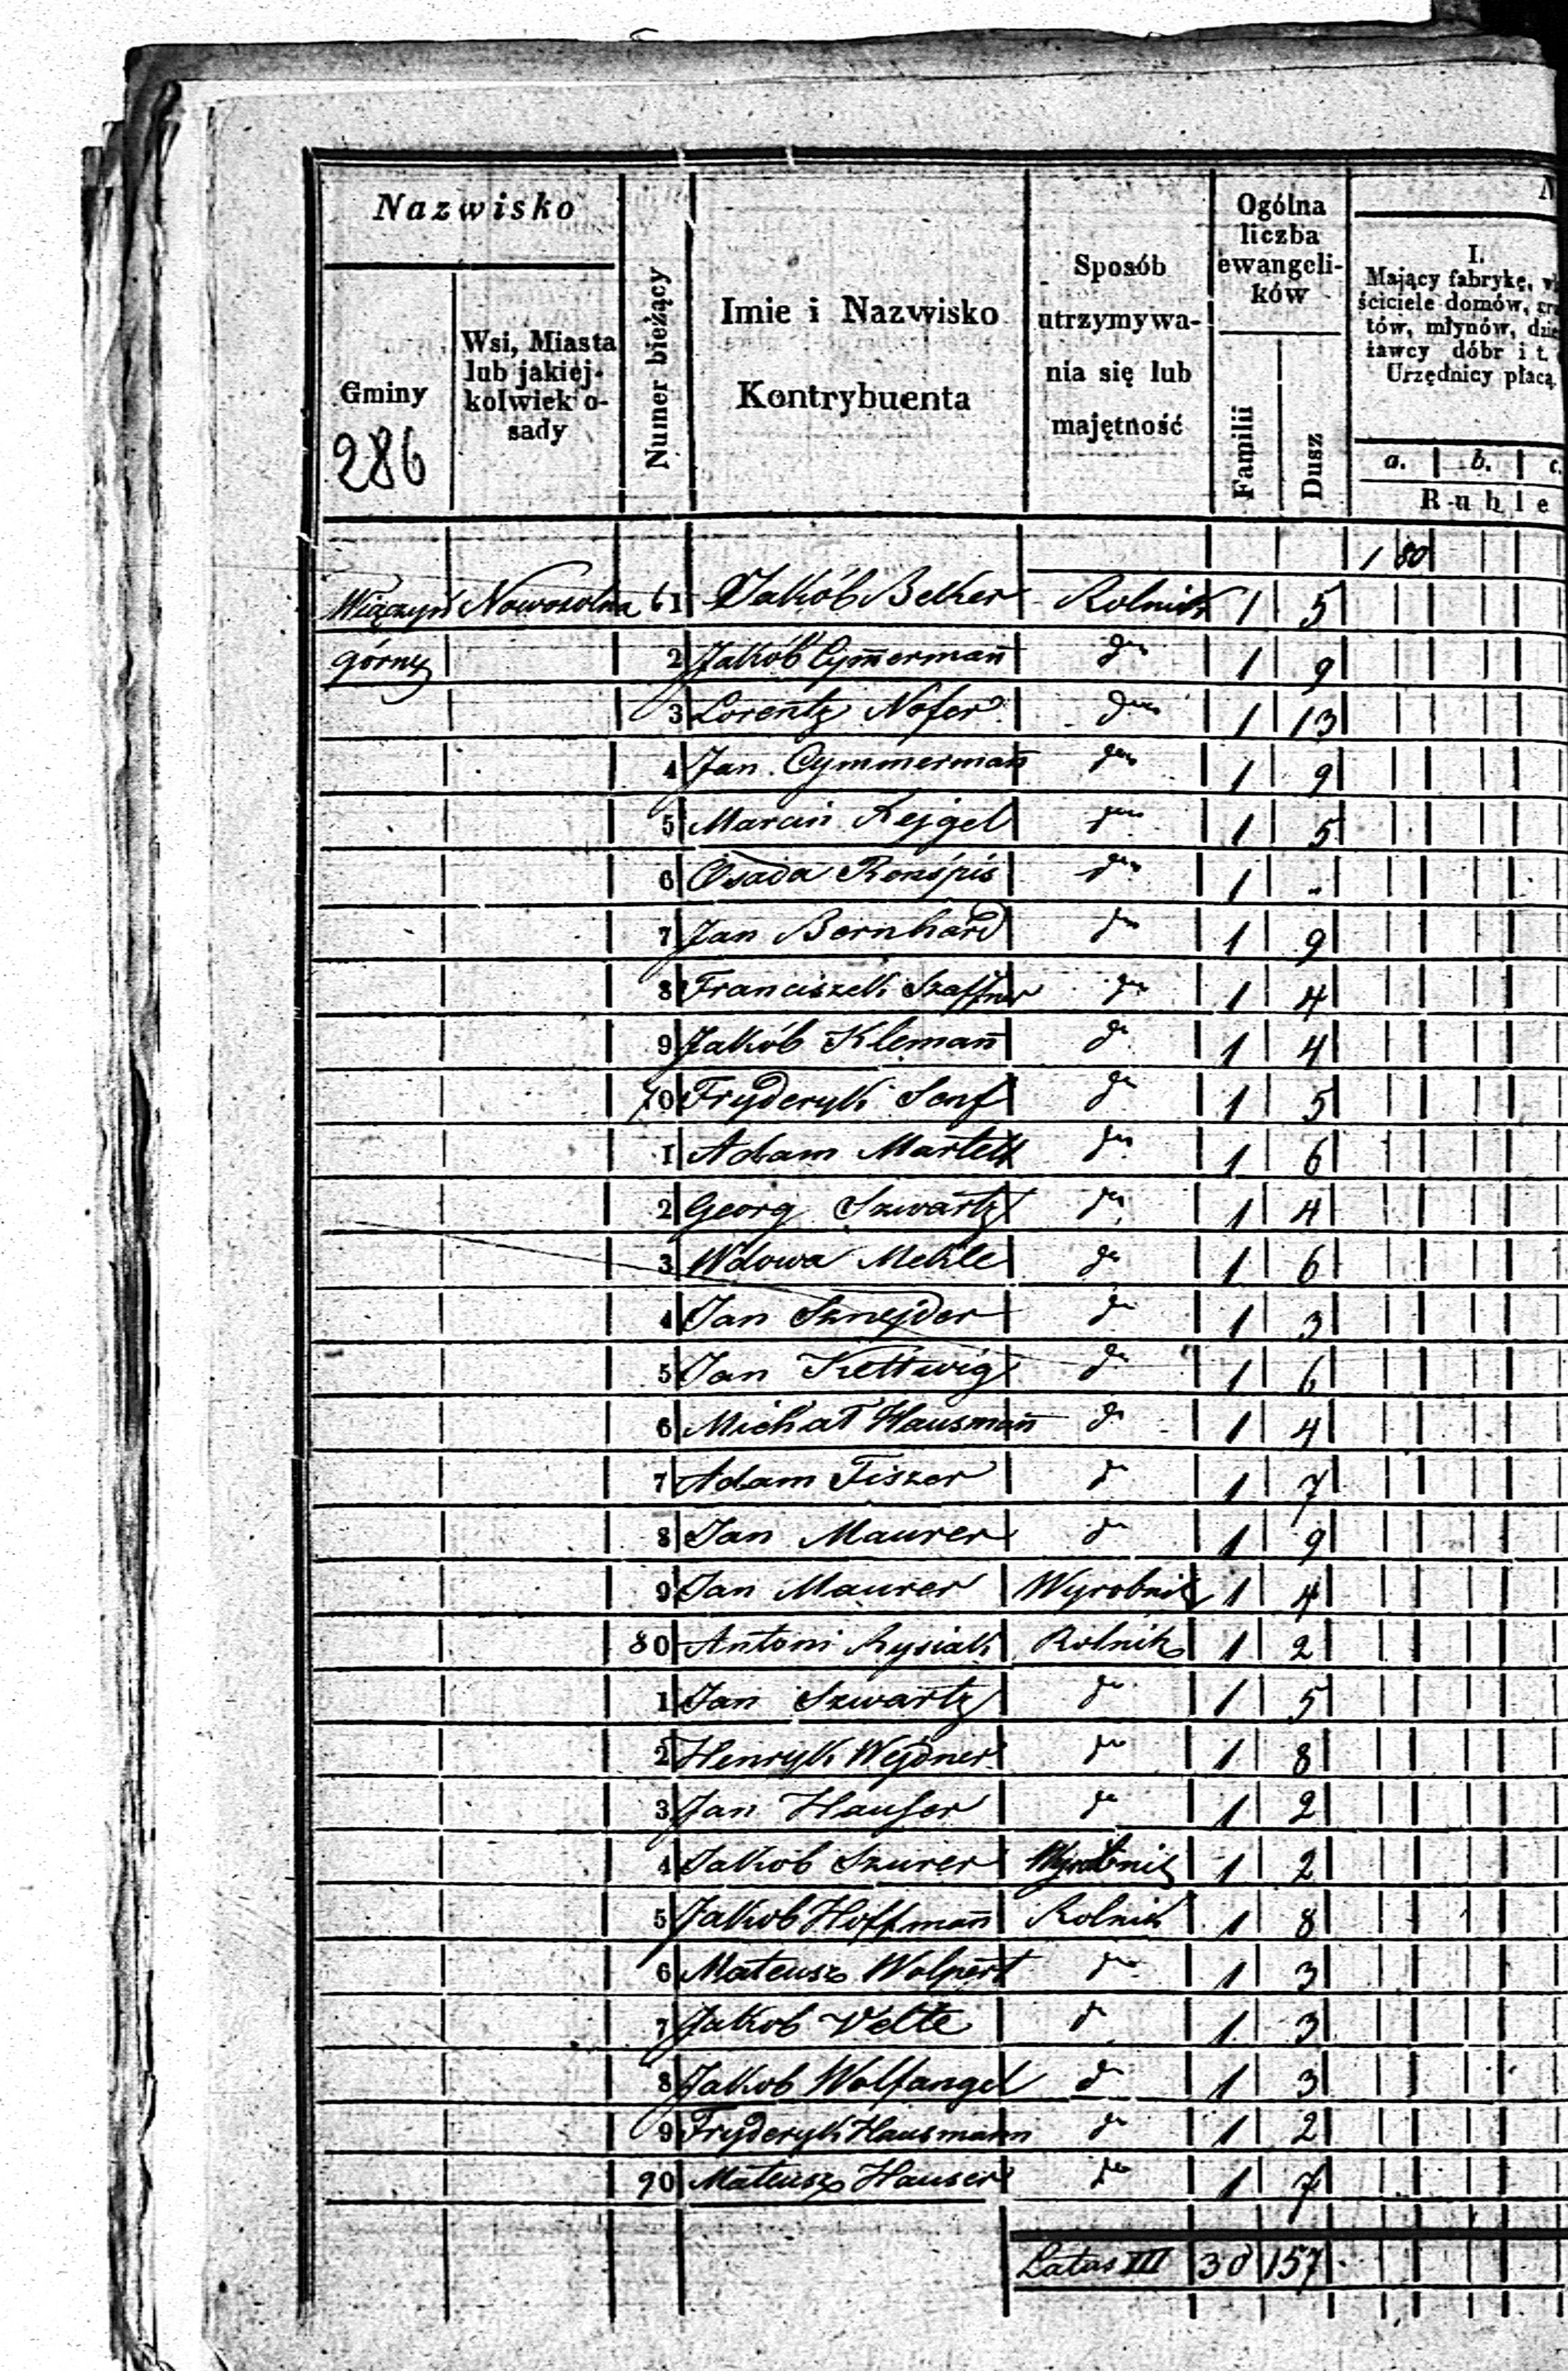 Nazwisko
Gminy
286
Wsi, Miasta
lub jakiej-
kolwiek o-
sady
Numer bieżący
Imie i Nazwisko
Kontrybuenta
Sposób
utrzymywa-
nia się lub
majętność
Ogólna
liczba
ewangeli-
ków
Familii
Dusz
I.
Mający fabrykę,
ściciele domów,
tów, młynów,
żawcy dóbr i t.
Urzędnicy płacą
a. b. c.
Ruble
1 80
Wiączyń Nowosolna 61 Jakób Beker Rolnik 1 5
górny 2 Jakób Cymerman do 1 9
3 Lorentz Nofer do 1 13
4 Jan Cymmerman do 1 9
5 Marcin Rejgel do 1 5
6 Osada Renspis do 1 -
7 Jan Bernhard do 1 9
8 Franciszek Szaffner do 1 4
9 Jakób Kleman do 1 4
70 Fryderyk Senf do 1 5
1 Adam Martell do 1 6
2 Georg Szwartz do 1 4
3 Wdowa Mekle do 1 6
4 Jan Sznejder do 1 3
5 Jan Kettwig do 1 6
6 Michał Hausman do 1 4
7 Adam Fiszer do 1 7
8 Jan Maurer do 1 9
9 Jan Maurer Wyrobnik 1 4
80 Antoni Rysiak Rolnik 1 2
1 Jan Szwartz do 1 5
2 Henryk Wejdner do 1 8
3 Jan Hauser do 1 2
4 Jakob Szurer Wyrobnik 1 2
5 Jakob Hoffman Rolnik 1 8
6 Mateusz Wolpert do 1 3
7 Jakob Velte do 1 3
8 Jakob Wolfangel do 1 3
9 Fryderyk Hausmann do 1 2
90 Mateusz Hauser do 1 7
Latus III 30 157